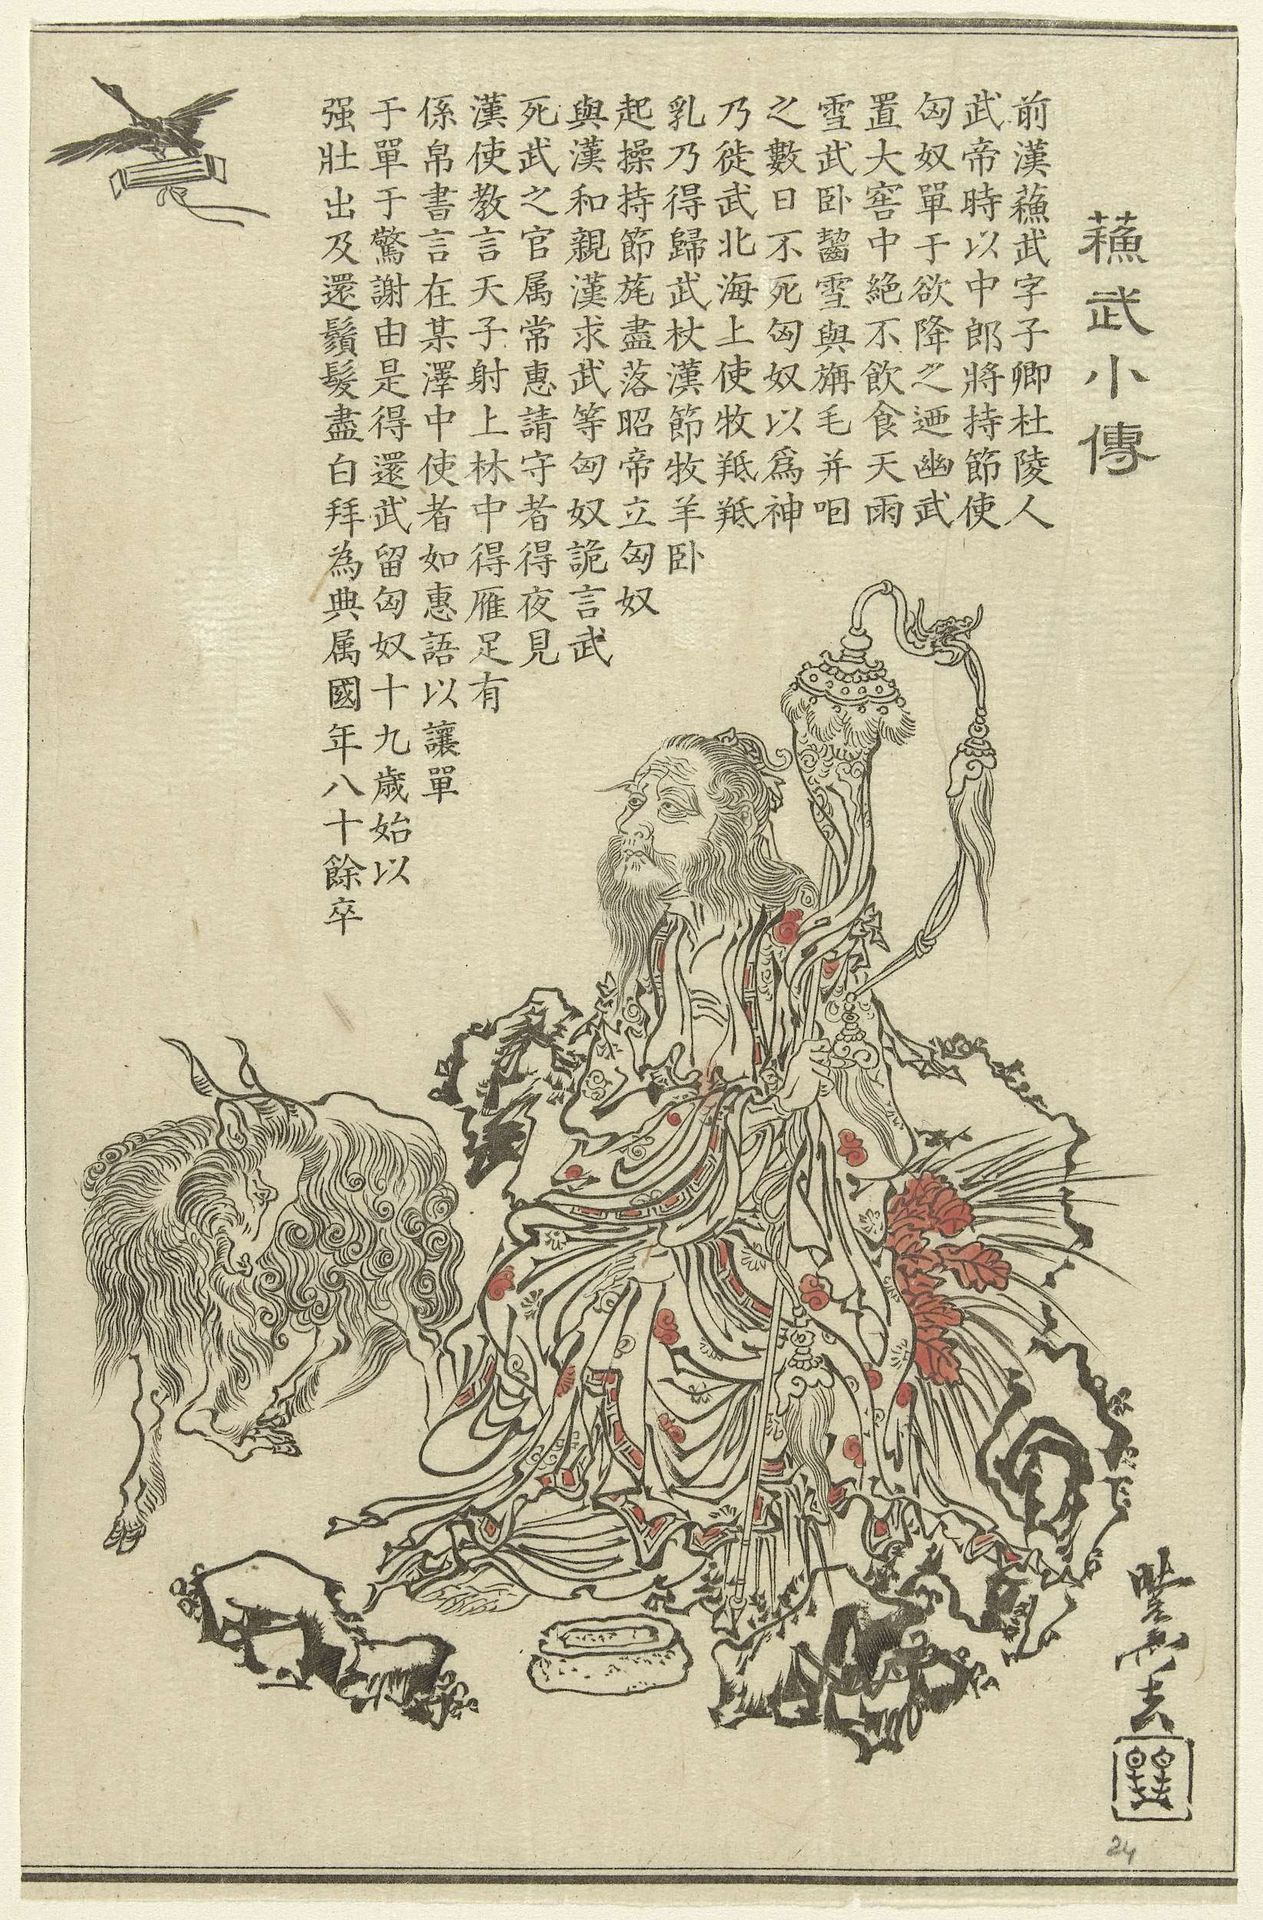 蘓武小傳
前漢蘓武字子卿杜陵人
武帝時以中郎將持節使
匈奴單于欲降之迺幽武
置大窖中絶不飲食天雨
雪武卧齧雪與旃毛并咽
之數日不死匈奴以爲神
乃徙武北海上使牧羝羝
乳乃得歸武杖漢節牧羊卧
起操持節旄盡落昭帝立匈奴
與漢和親漢求武等匈奴詭言武
死武之官属常惠請守者得夜見
漢使教言天子射上林中得雁足有
係帛書言在某澤中使者如惠語以讓單
于單于驚謝由是得還武留匈奴十九歳始以
强壯出及還鬚髮盡白拜為典属國年八十餘卒
24